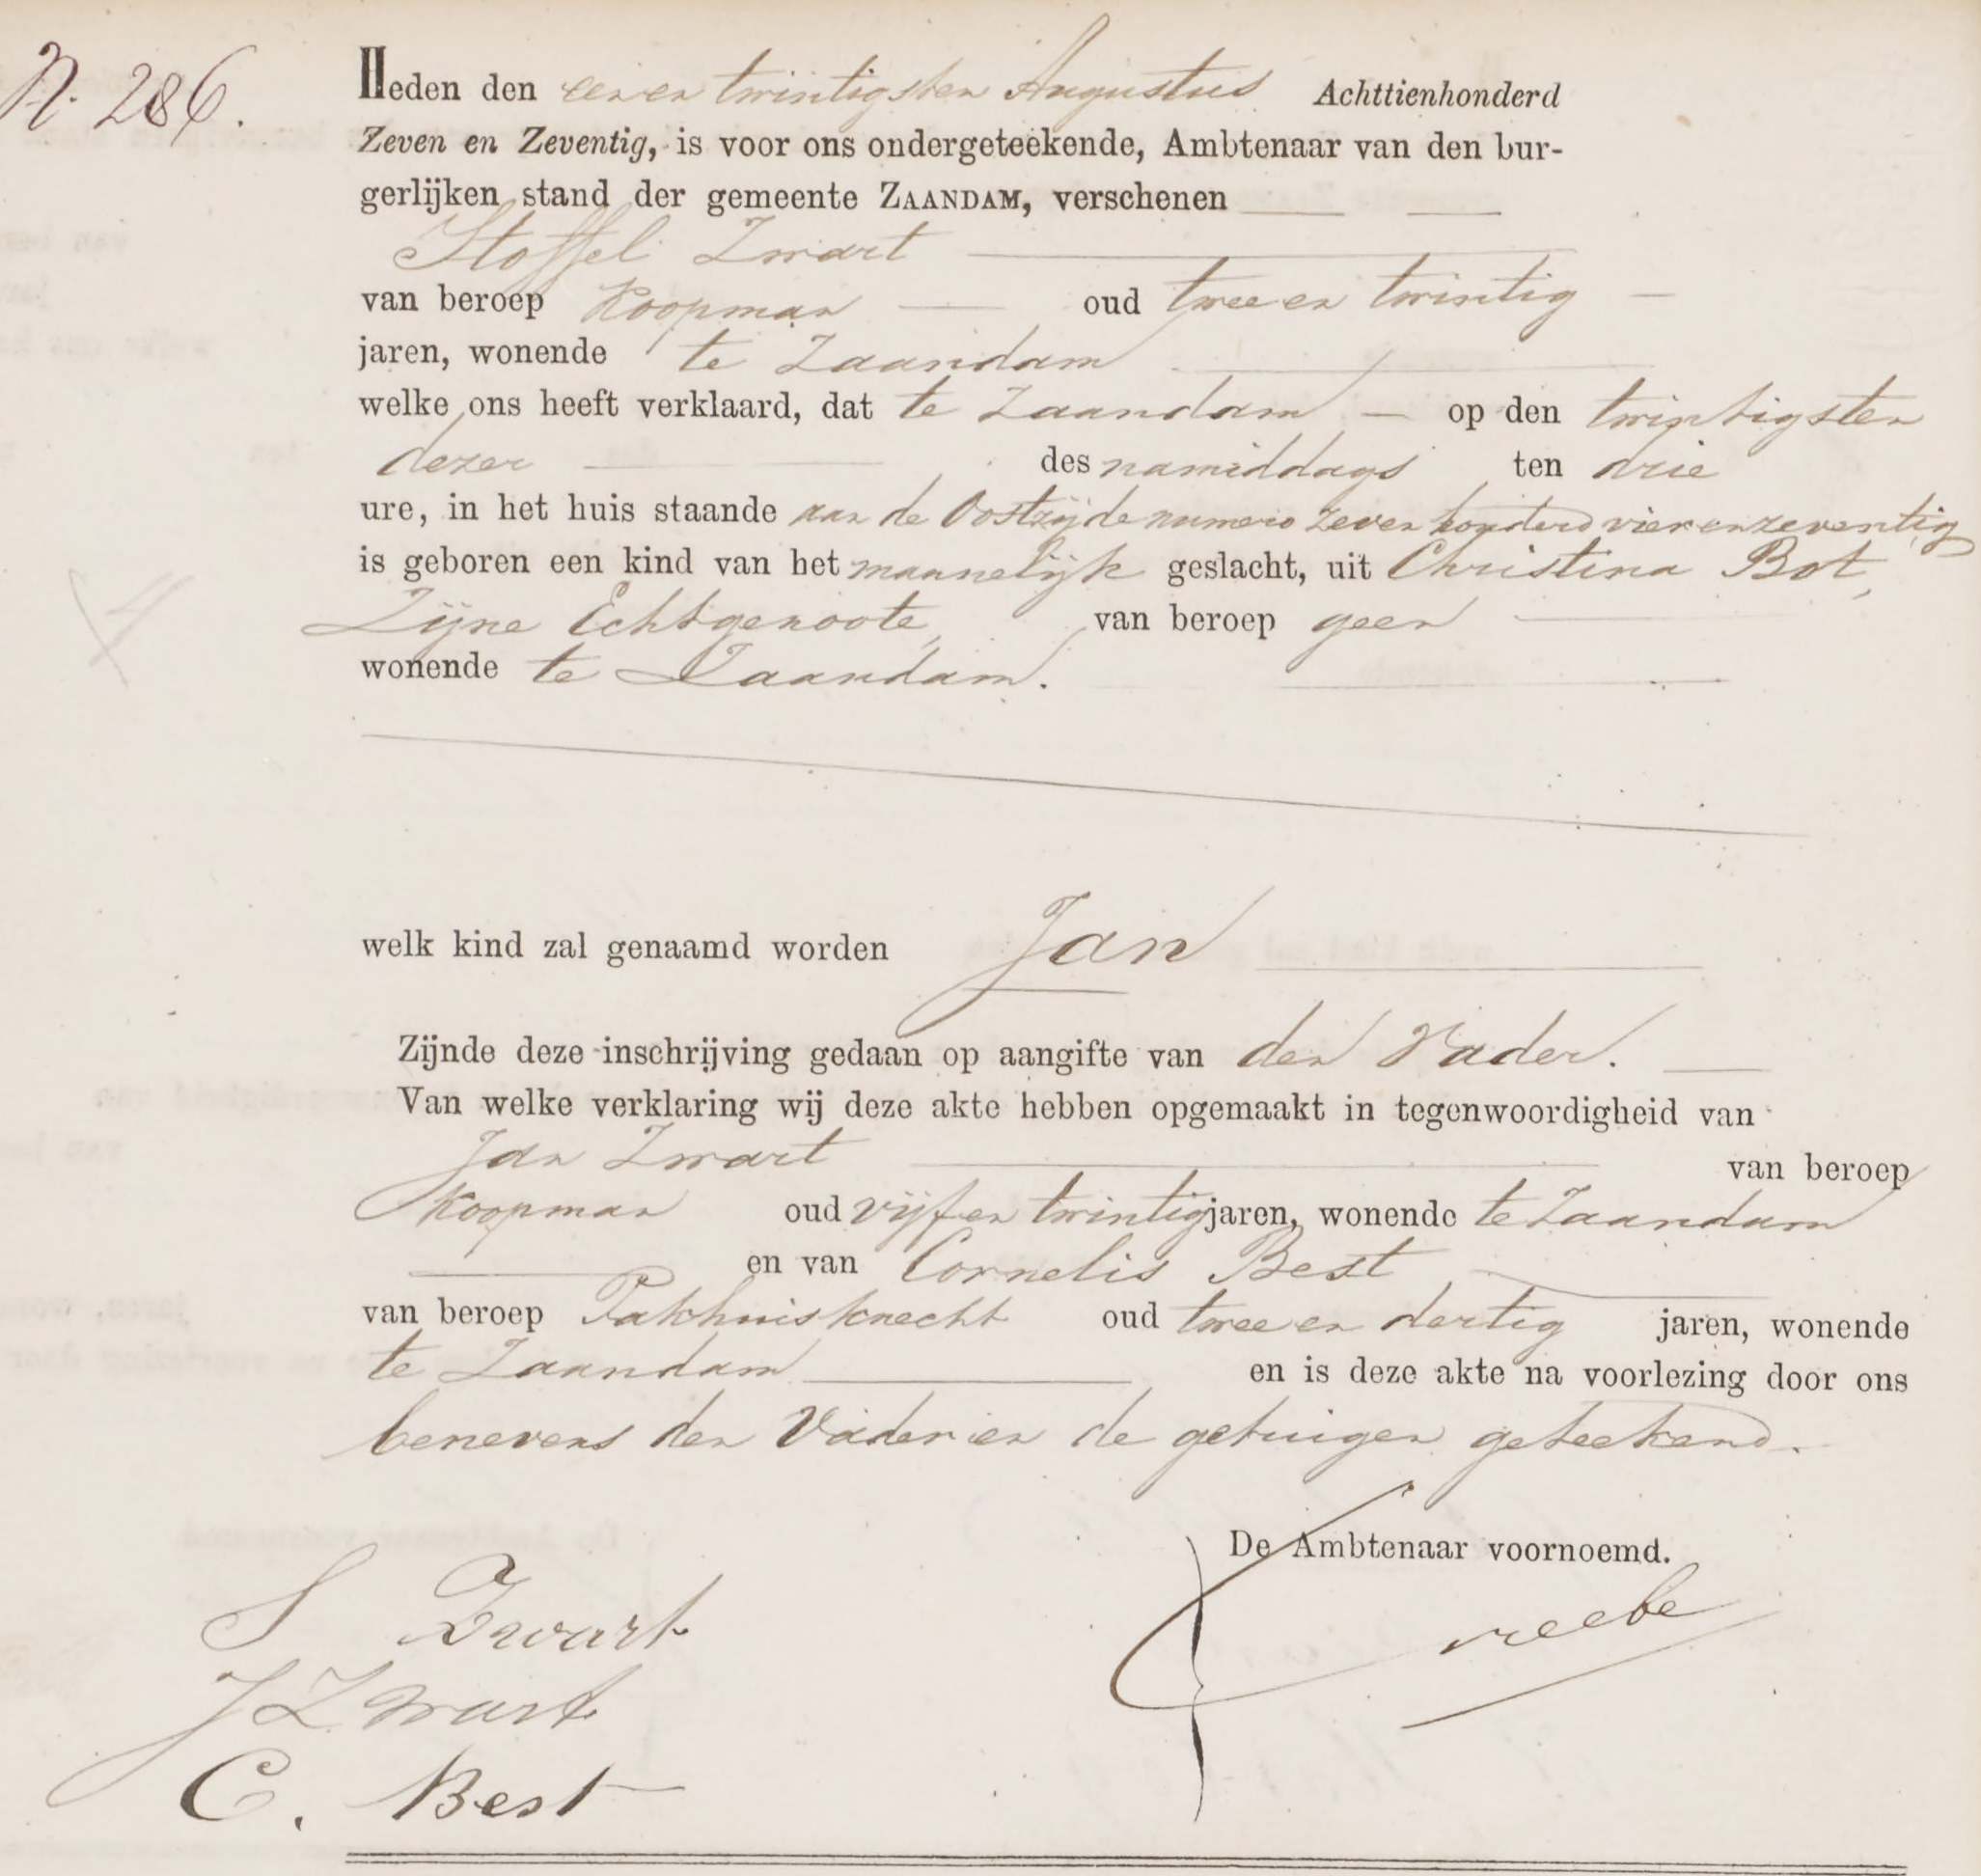 N. 286.
Heden den een en twintigsten Augustus Achttienhonderd
Zeven en Zeventig, is voor ons ondergeteekende, Ambtenaar van den bur-
gerlijken stand der gemeente ZAANDAM, verschenen
Stoffel Zwart
van beroep Koopman oud twee en twintig
jaren, wonende te Zaandam
welke ons heeft verklaard, dat te Zaandam op den twintigsten
dezer des namiddags ten drie
ure, in het huis staande aan de Oostzijde numero zeven honderd vier en zeventig
is geboren een kind van het mannelijk geslacht, uit Christina Bot,
Zijne Echtgenoote, van beroep geen
wonende te Zaandam.
welk kind zal genaamd worden Jan
Zijnde deze inschrijving gedaan op aangifte van den Vader.
Van welke verklaring wij deze akte hebben opgemaakt in tegenwoordigheid van
Jan Zwart van beroep
Koopman oud vijf en twintig jaren, wonende te Zaandam
en van Cornelis Best,
van beroep Pakhuisknecht oud twee en dertig jaren, wonende
te Zaandam en is deze akte na voorlezing door ons
benevens den Vader en de getuigen geteekend.
De Ambtenaar voornoemd.
S Zwart
J Zwart
C. Best